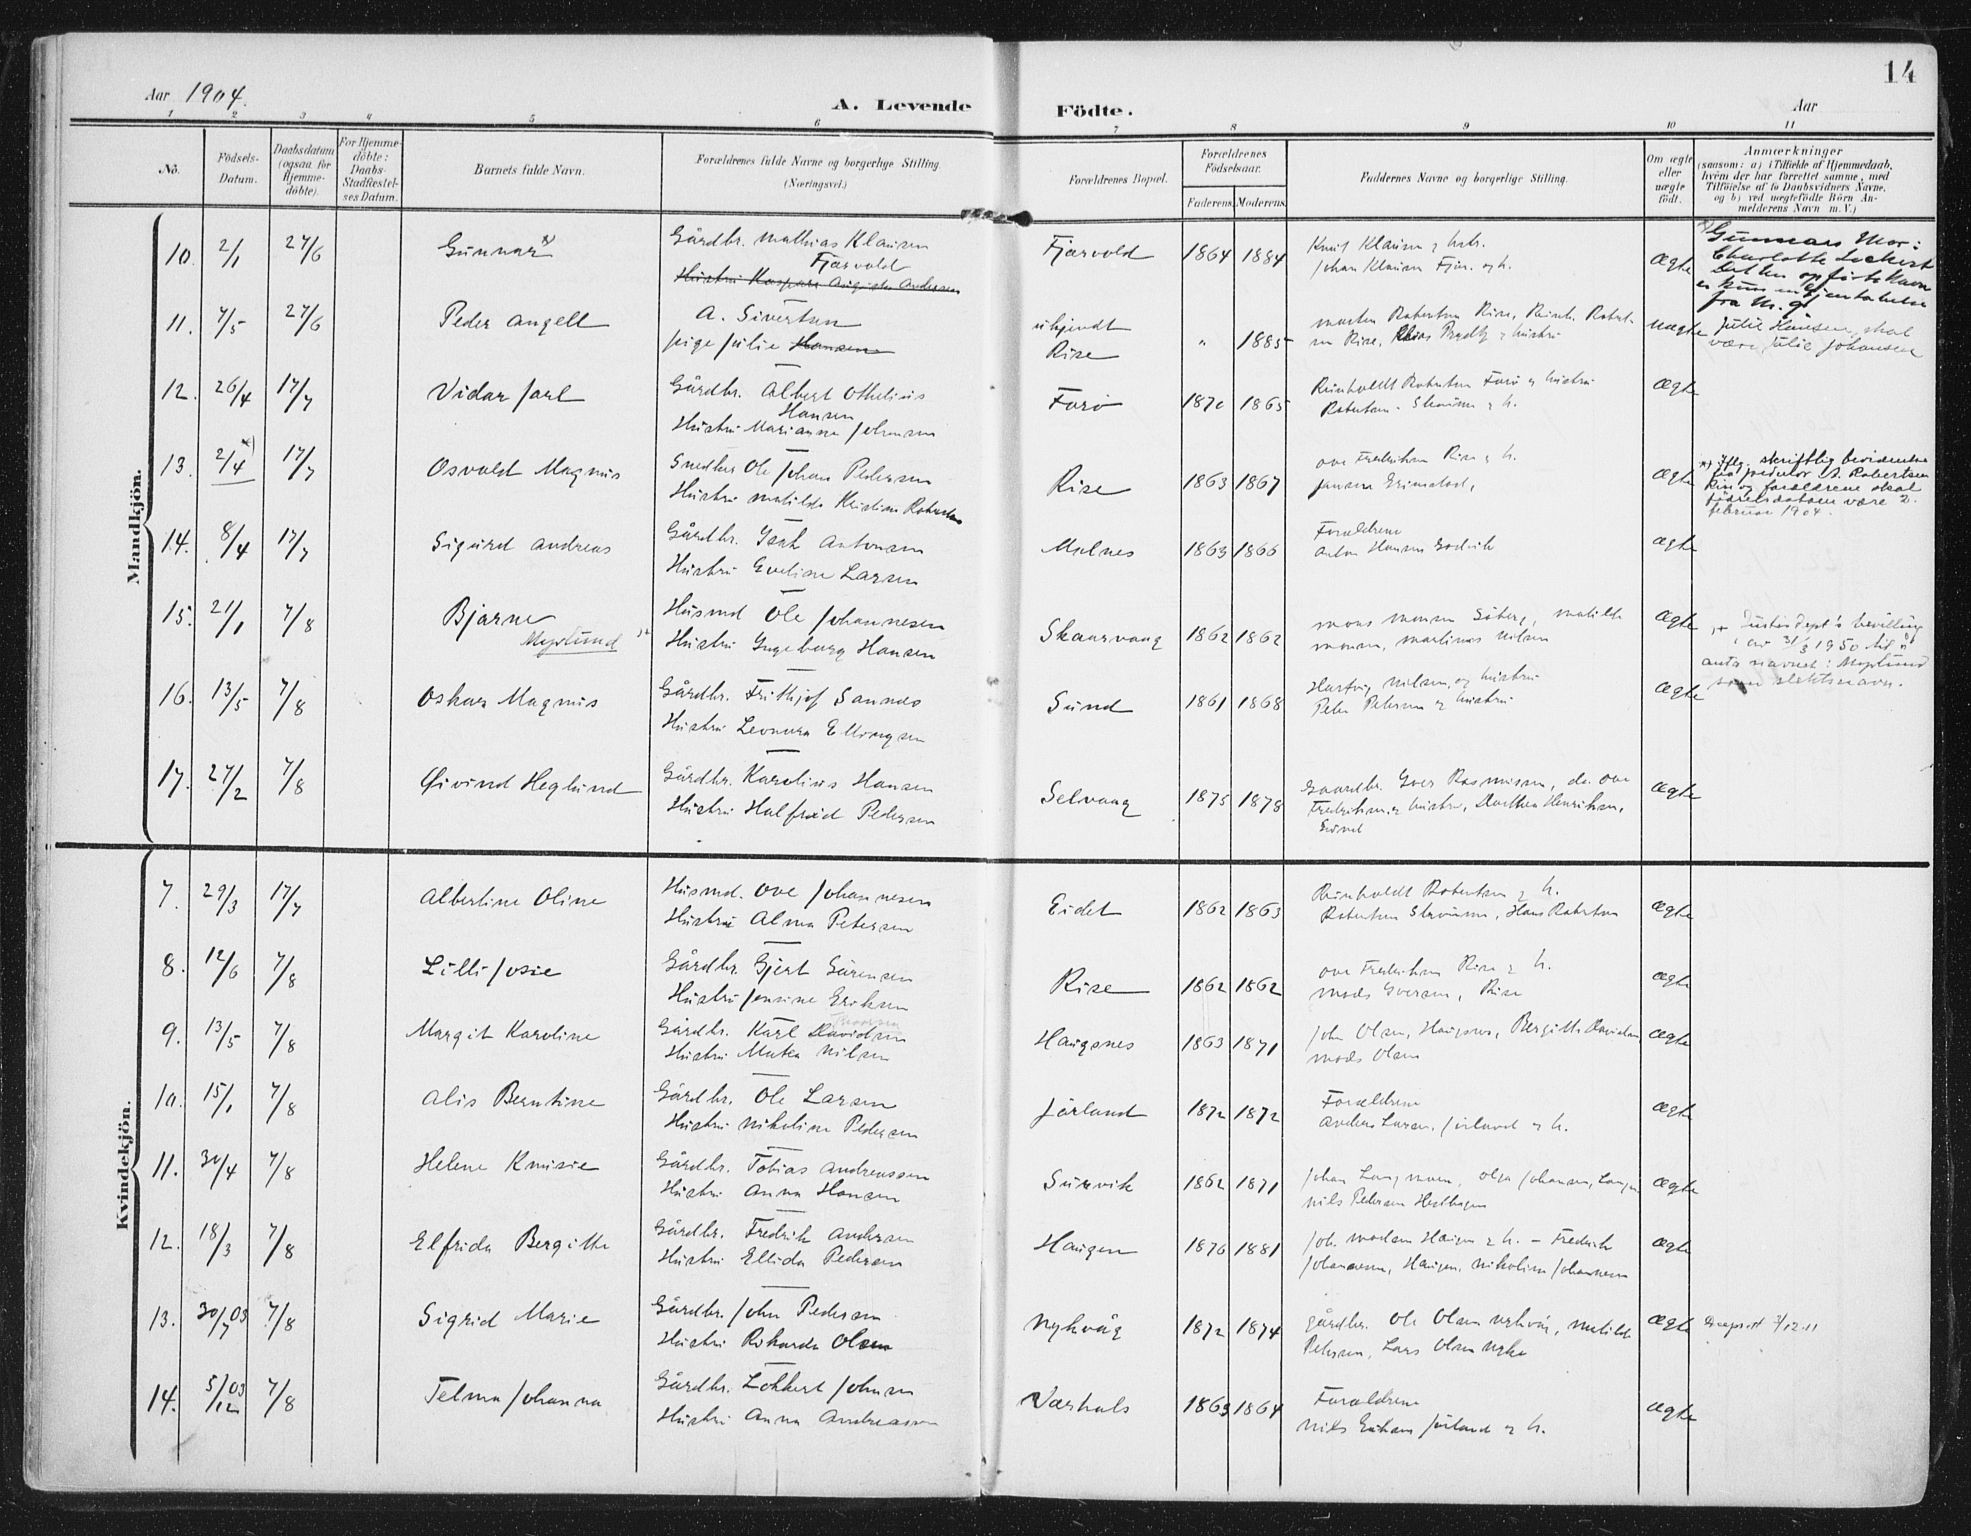 14
Aar 1904.
A. Levende Födte.
Aar
1 2 3 4 5 6 7 8 9 10 11
No.
Födsels-
Datum.
Daabsdatum
(ogsaa for
Hjemme-
döbte).
For Hjemme-
döbte:
Daabs-
Stadfæstel-
ses Datum.
Barnets fulde Navn.
Forældrenes fulde Navne og borgerlige Stilling
(Næringsvei.)
Forældrenes Bopæl.
Forældrenes
Födselsaar.
Faderens Moderens
Faddernes Navne og borgerlige Stilling.
Om ægte
eller
uægte
födt.
Anmærkninger
(saasom: a) i Tilfælde af Hjemmedaab,
hvem der har forrettet samme, med
Tilföielse af to Daabsvidners Navne,
og b) ved uægtefödte Börn An-
melderens Navn m. V.)
Mandkjön.
10. 2/1 27/6 Gunnar x) Gårdbr. Mathias Klausen
Fjærvold
Hustru Kaspara Augusta Andersen
Fjærvold 1864 1884 Knut Klausen & hstr.
Johan Klausen Fjær. og h.
Ægte
x) Gunnars Mor:
Charlotte Lockert
Det her opførte Navn
fra M. g.
11. 7/5 27/6 Peder Angell A. Sivertsen
pige Julie Hansen
ubjendt
Rise " 1885 Morten Robertsen Rise,
uægte Julie Hansen, skal
være Julie Johansen
12. 26/4 17/7 Vidar Jarl Gårdbr. Albert Othelius
Hansen
Hustru Marianne Johansen
Forö 1870 1865 Reinholdt Robertsen Forö og hustru
Robertsen & h.
Ægte
13. 2/4 x) 17/7 Osvald Magnus Snedker Ole Johan Pedersen
Hustru Matilde Kristine Robertsen
Rise 1863 1867 Ove Fredriksen Rise & h.
Jensen Grimstad,
Ægte
x) Iflg. skriftlig bevidnelse
fra predikor A. Robertsen
Rise og forældrene skal
födselsdatoen være 2.
februar 1904.
14. 8/4 17/7 Sigurd Andreas Gårdbr. Isak Antonsen
Hustru Eveline Larsen
Malnes 1863 1866 Forældrene
Anton Hansen
ægte
15. 21/1 7/8 Bjarne
Myrlund x
Husmd Ole Johannesen
Hustru Ingeborg Hansen
Skaarvaag 1862 1862 Mons Monsen Söberg, Matilde
Monsen, Martinus Nilsen
Ægte
x Justisdept's bevilling
av 31/3 1950 til å
anta navnet: Myrlund
som slektsnavn.
16. 13/5 7/8 Oskar Magnus Gårdbr. Frithjof Sannes
Hustru Leonora Ellingsen
Sund 1861 1868 Hartvig Nilsen og hustru
Peter Petersen & hustru
Ægte
17. 27/2 7/8 Øivind Heglund Gårdbr. Karelius Hansen
Hustru Halfrid Pedersen
Selvaag 1875 1878 Gaardbr. Iver Rasmussen, do. Ove
Fredriksen & hustru, Dorthea Henriksen,
Sund
Ægte
Kvindekjön.
7. 29/3 17/7 Albertine Oline Husmd. Ove Johannesen
Hustru Alma Petersen
Eidet 1862 1863 Reinholdt Robertsen & h.
Robertsen Straume, Hans Robertsen
Ægte
8. 12/6 7/8 Lilli Josie Gårdbr. Gjert Sörensen
Hustru Jensine Eriksen
Rise 1862 1862 Ove Fredriksen Rise & h.
Mads Iversen, Rise
Ægte
9. 13/5 7/8 Margit Karoline Gårdbr. Karl Davidsen
Hustru Matea Nilsen
Haugsnes 1863 1871 John Olsen, Haugsnes, Bergitte Davidsen
Mads Olsen
Ægte
10. 15/1 7/8 Alis Berntine Gårdbr. Ole Larsen
Hustru Nikoline Pedersen
Jörland 1872 1872 Forældrene
Anders Larsen, Jörland og h.
Ægte
11. 30/4 7/8 Helene Knusie Gårdbr. Tobias Andreassen
Hustru Anna Hansen
Survik 1862 1871 Johan Langmoen, Olga Johansen,
Nils Pedersen Hesthagen
Ægte
12. 18/3 7/8 Elfrida Bergitte Gårdbr. Fredrik Andersen
Hustru Ellida Pedersen
Haugen 1876 1881 Joh. Madsen Haugen & h. - Fredrik
Johannesen, Haugen, Nikoline Johannesen
Ægte
13. 30/7 03 7/8 Sigrid Marie Gårdbr. John Pedersen
Hustru Rikarda Olsen
Nykvåg 1872 1874 gårdbr. Ole Olsen Nykvåg, Matilde
Petersen, Lars Olsen Nyke
Ægte 7/12.11
14. 5/12 03 7/8 Telma Johanna Gårdbr. Lokkert Johnsen
Hustru Anna Andreassen
Værhals 1863 1864 Forældrene
Nils Eriksen Jörland & h.
Ægte